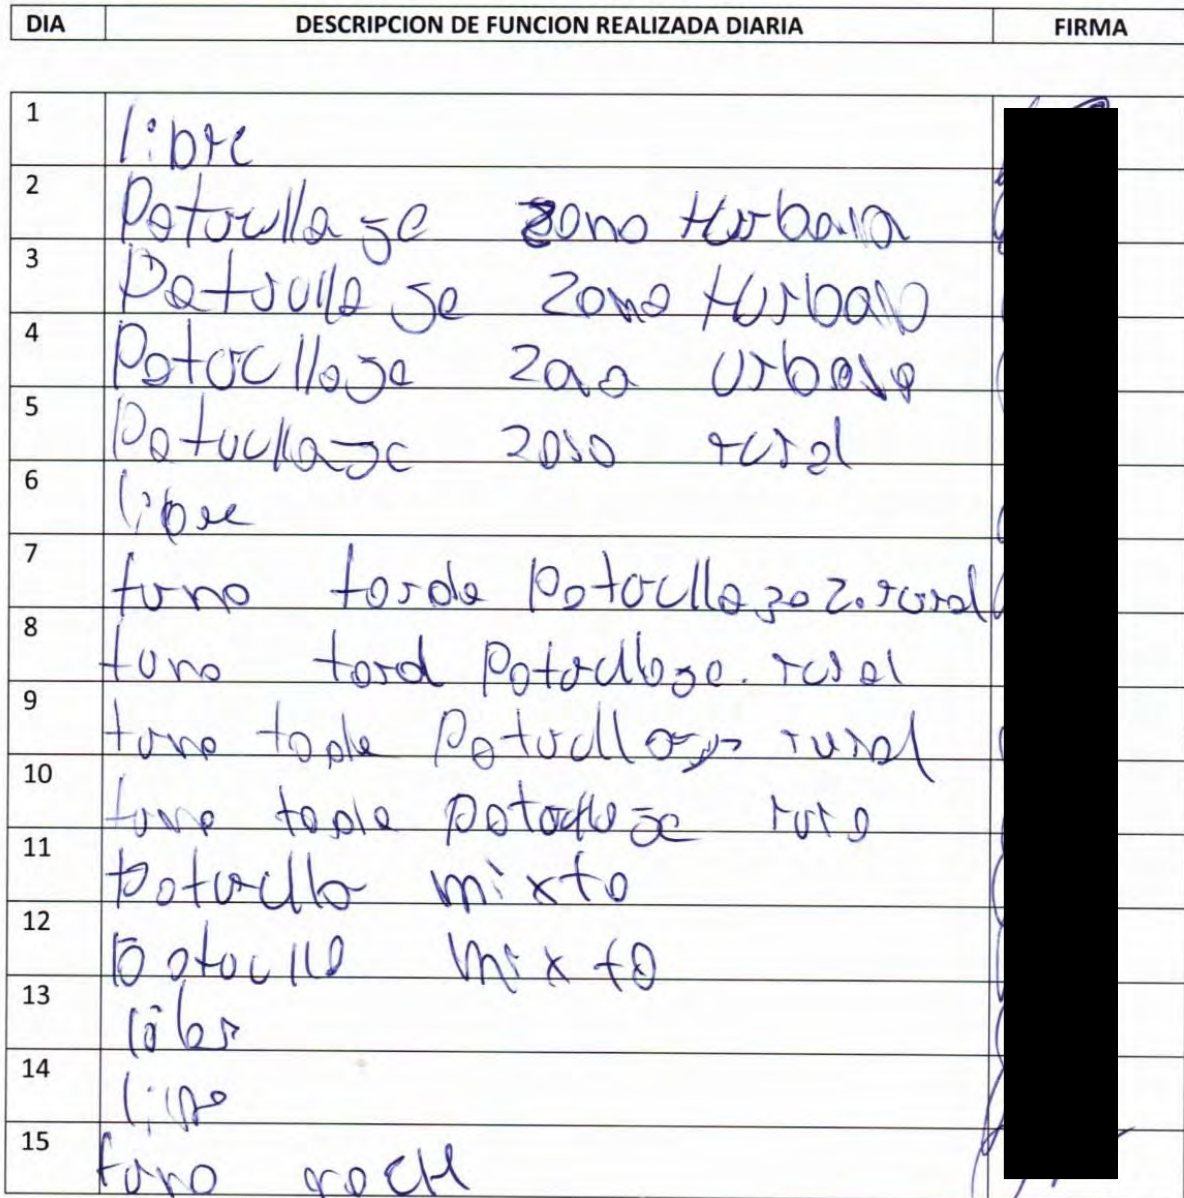 DIA DESCRIPCION DE FUNCION REALIZADA DIARIA FIRMA
1 libre
2 Patrullaje zona Hurbana
3 Patrullaje zona Hurbana
4 Patrullaje zona urbana
5 Patrullaje zona rural
6 libre
7 turno tarde Patrullaje z. rural
8 turno tard Patrullaje. rural
9 turno tarde Patrullaje rural
10 turno tarde patrullaje rura
11 Patrulla mixto
12 Patrulla mixto
13 libre
14 libre
15 turno